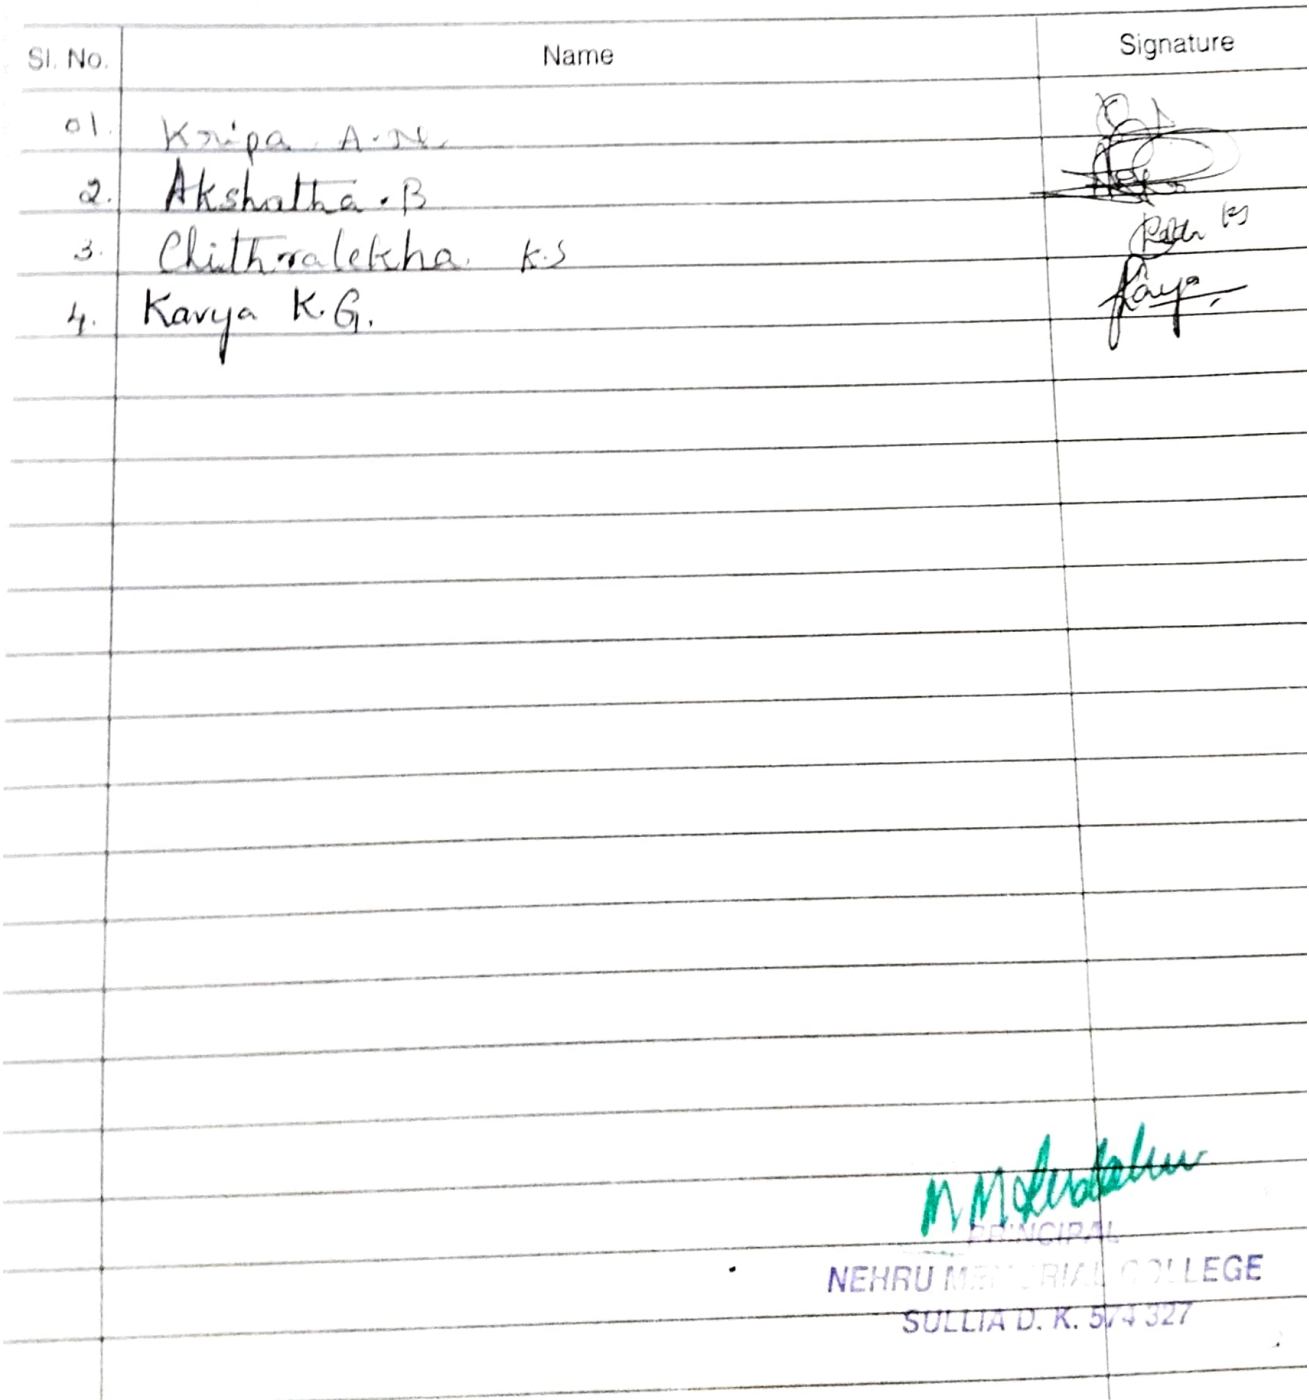 Sl. No. Name Signature
01. Kripa A.N.
2. Akshatha.B
3. Chithralekha K.S
4. Kavya K.G. Kavya
PRINCIPAL
NEHRU MEMORIAL COLLEGE
SULLIA D. K. 574 327